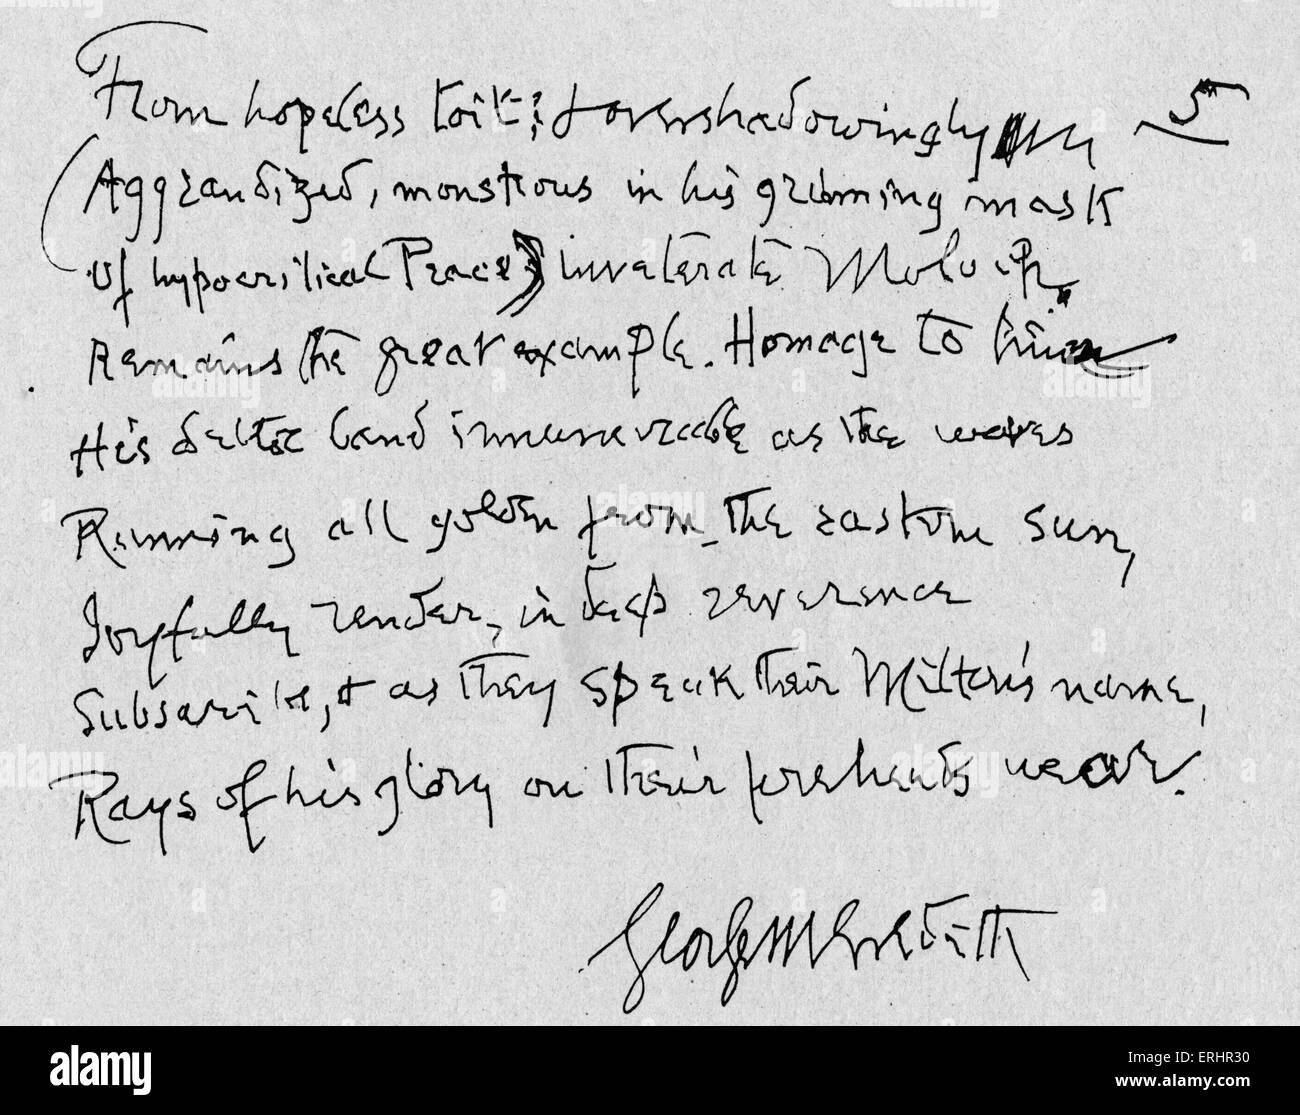 From hopeless toil: & overshadowingly 5
(Aggrandized, monstrous in his grinning mask
Of hypocritical Peace,) inveterate Moloch
Remains the great example. Homage to him
His debtor band innumerable as the waves
Running all golden from the eastern sun,
Joyfully render, in deep reverence
Subscribe, & as they speak their Milton's name,
Rays of his glory on their foreheads wear.
George Meredith
alamy
alamy
alamy
alamy
ERHR30
www.alamy.com